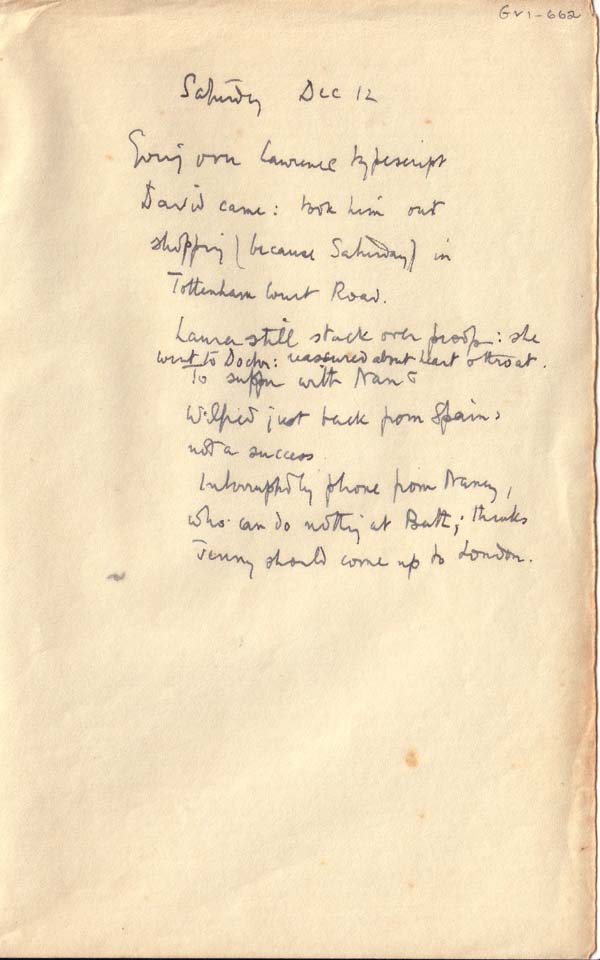 GV1-662
Saturday Dec 12
Going over Lawrence typescript
David came: took him out
shopping (because Saturday) in
Tottenham Court Road.
Laura still stuck over proofs: she
went to Doctor: reassured about heart & throat.
To supper with Nan &
Wilfred just back from Spain:
not a success
Interrupted by phone from Nancy,
who can do nothing at Bath; thinks
Jenny should come up to London.